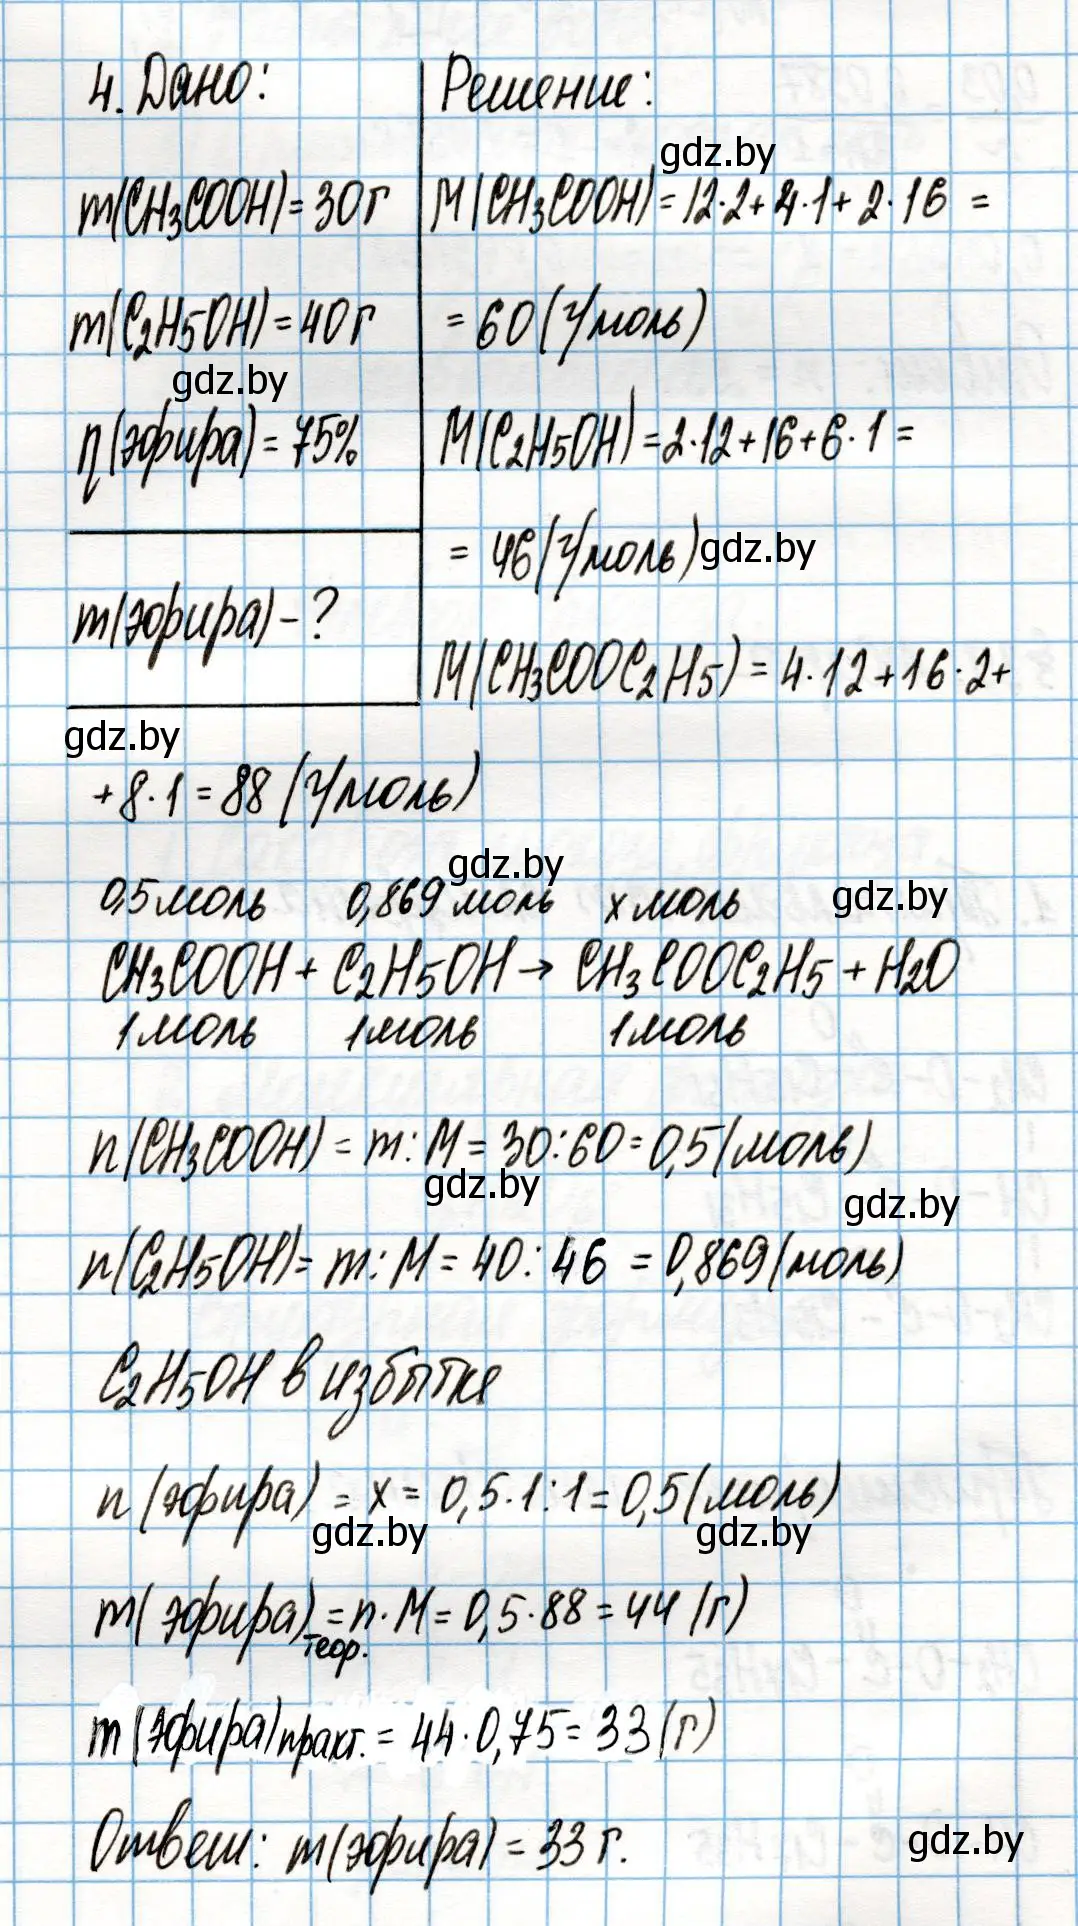 4. Дано:
m(CH3COOH)=30г
m(C2H5OH)=40г
gdz.by
η(эфира)=75%
m(эфира)-?
gdz.by
Решение:
gdz.by
M(CH3COOH)=12·2+4·1+2·16 =
=60(г/моль)
M(C2H5OH)=2·12+16+6·1=
= 46(г/моль) gdz.by
M(CH3COOC2H5)=4·12+16·2+
+8·1=88(г/моль)
gdz.by
0,5моль 0,869 моль x моль gdz.by
CH3COOH+C2H5OH→ CH3COOC2H5+H2O
1моль 1моль 1моль
n(CH3COOH)= m:M=30:60=0,5(моль)
gdz.by gdz.by
n(C2H5OH)= m:M=40:46 =0,869(моль)
C2H5OH в избытке
n(эфира) = x= 0,5·1:1=0,5(моль)
gdz.by gdz.by
m(эфира)теор.=n·M=0,5·88=44 (г)
m(эфира)практ.= 44·0,75=33(г)
Ответ: m(эфира)=33г.
gdz.by